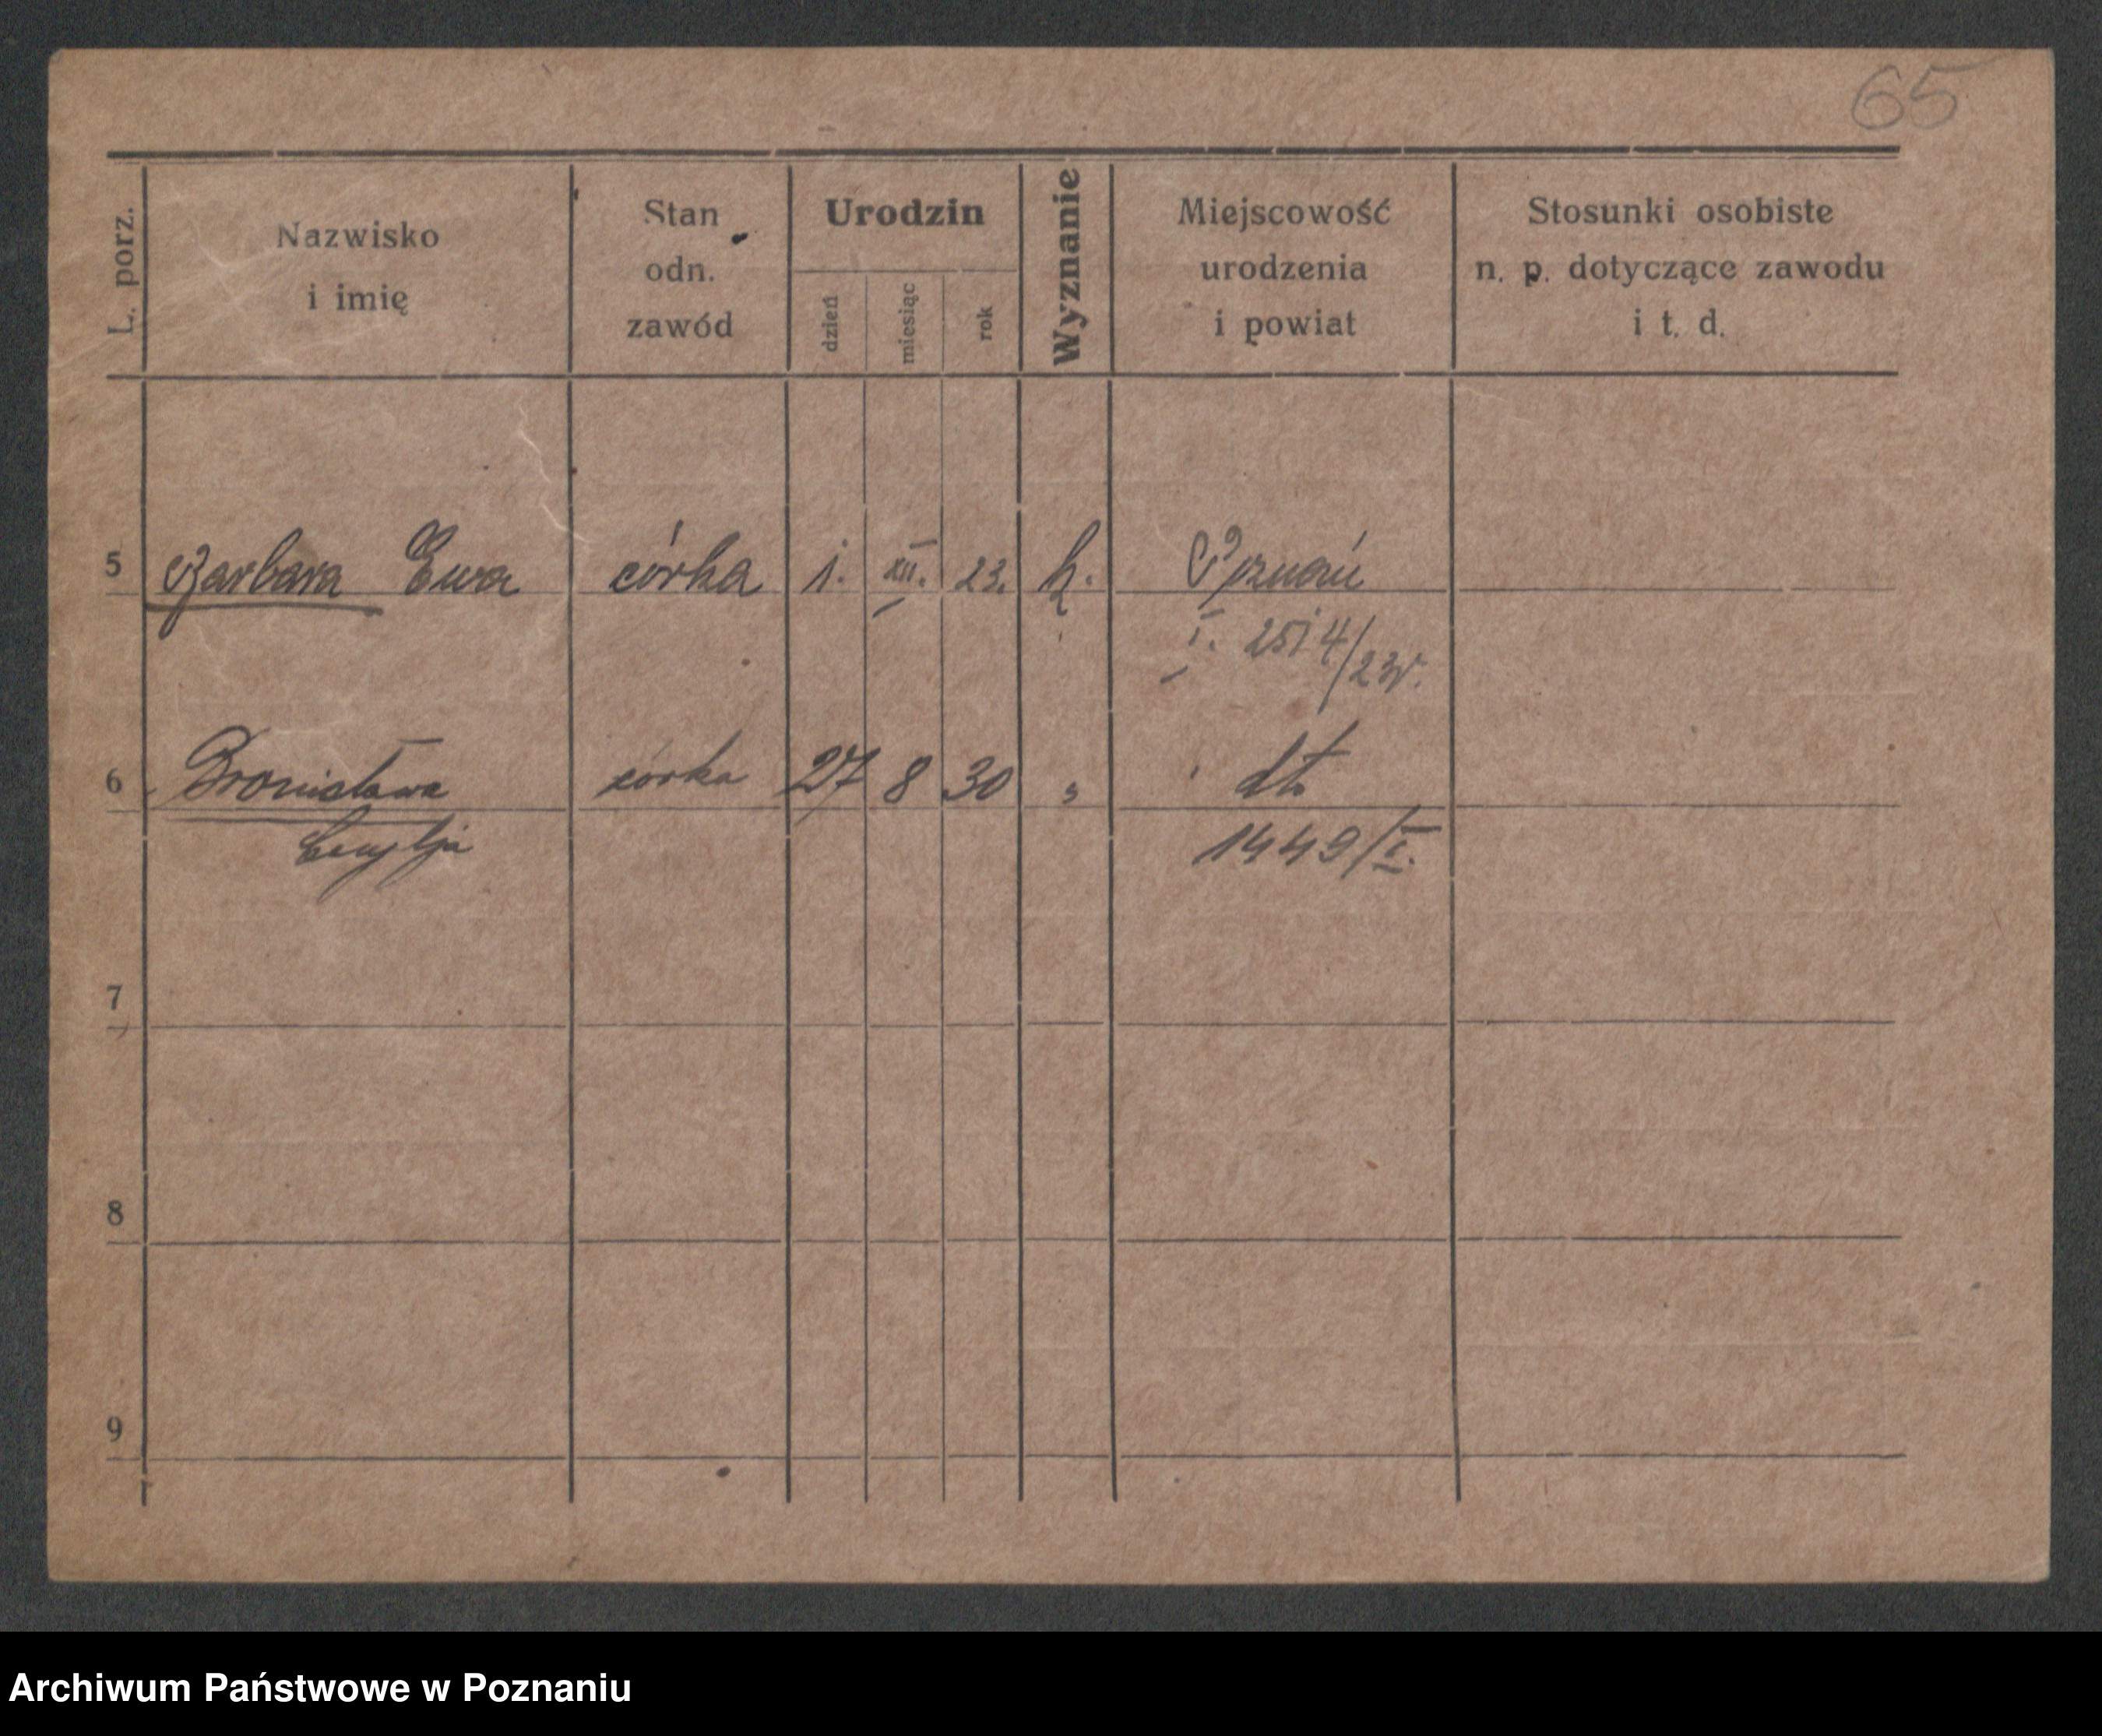 65
L. porz.
Nazwisko
i imię
Stan
odn.
zawód
Urodzin
dzień
miesiąc
rok
Wyznanie
Miejscowość
urodzenia
i powiat
Stosunki osobiste
n. p. dotyczące zawodu
i t. d.
5 Barbara Ewa córka 1. XII. 23. k. Poznań
I. 2514/23r.
6 Bronisława córka 27 8 30 " dto
1449/I.
7
8
9
Archiwum Państwowe w Poznaniu